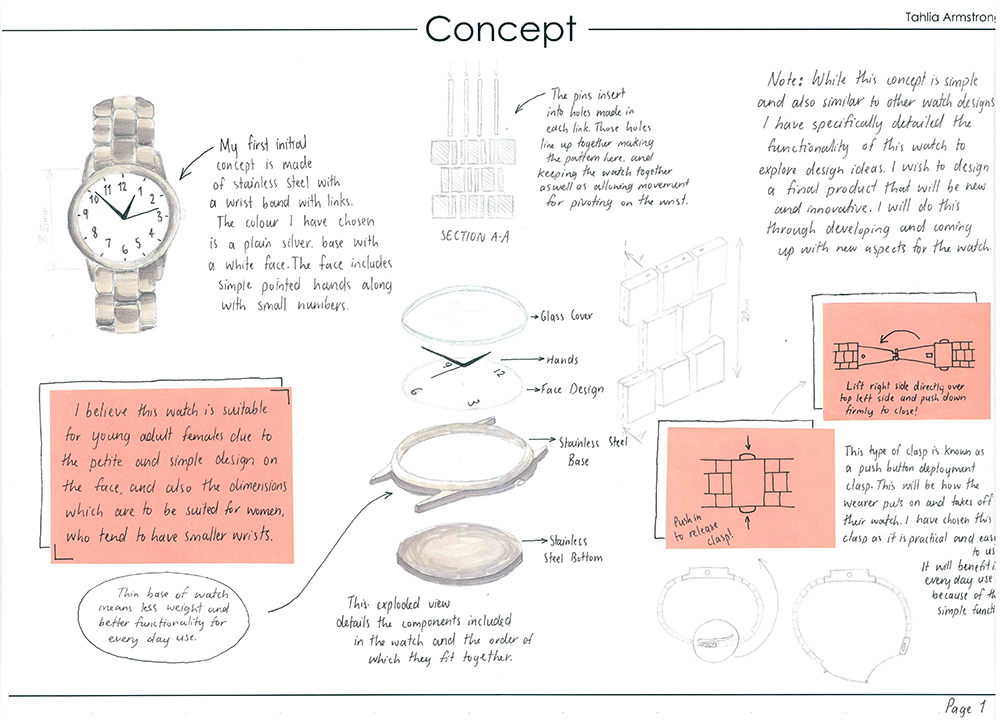 Concept
Tahlia Armstrong
11 12 1
10 2
9 3
8 4
7 6 5
My first initial
concept is made
of stainless steel with
a wrist band with links.
The colour I have chosen
is a plain silver. base with
a white face. The face includes
simple pointed hands along
with small numbers.
The pins insert
into holes made in
each link. Those holes
line up together making
the pattern here, and
keeping the watch together
aswell as allowing movement
for pivoting on the wrist.
SECTION A-A
Note: While this concept is simple
and also similar to other watch designs
I have specifically detailed the
functionality of this watch to
explore design ideas. I wish to design
a final product that will be new
and innovative. I will do this
through developing and coming
up with new aspects for the watch.
Glass Cover
Hands
Face Design
9 12
6 3
Stainless Steel
Base
Stainless
Steel Bottom
I believe this watch is suitable
for young adult females due to
the petite and simple design on
the face, and also the dimensions
which are to be suited for women,
who tend to have smaller wrists.
Thin base of watch
means less weight and
better functionality for
every day use.
This exploded view
details the components included
in the watch and the order of
which they fit together.
Lift right side directly over
top left side and push down
firmly to close!
Push in
to release
clasp!
This type of clasp is known as
a push button deployment
clasp. This will be how the
wearer puts on and takes off
their watch. I have chosen this
clasp as it is practical and easy
to us
It will benefit i
every day use
because of th
simple functi
Page 1